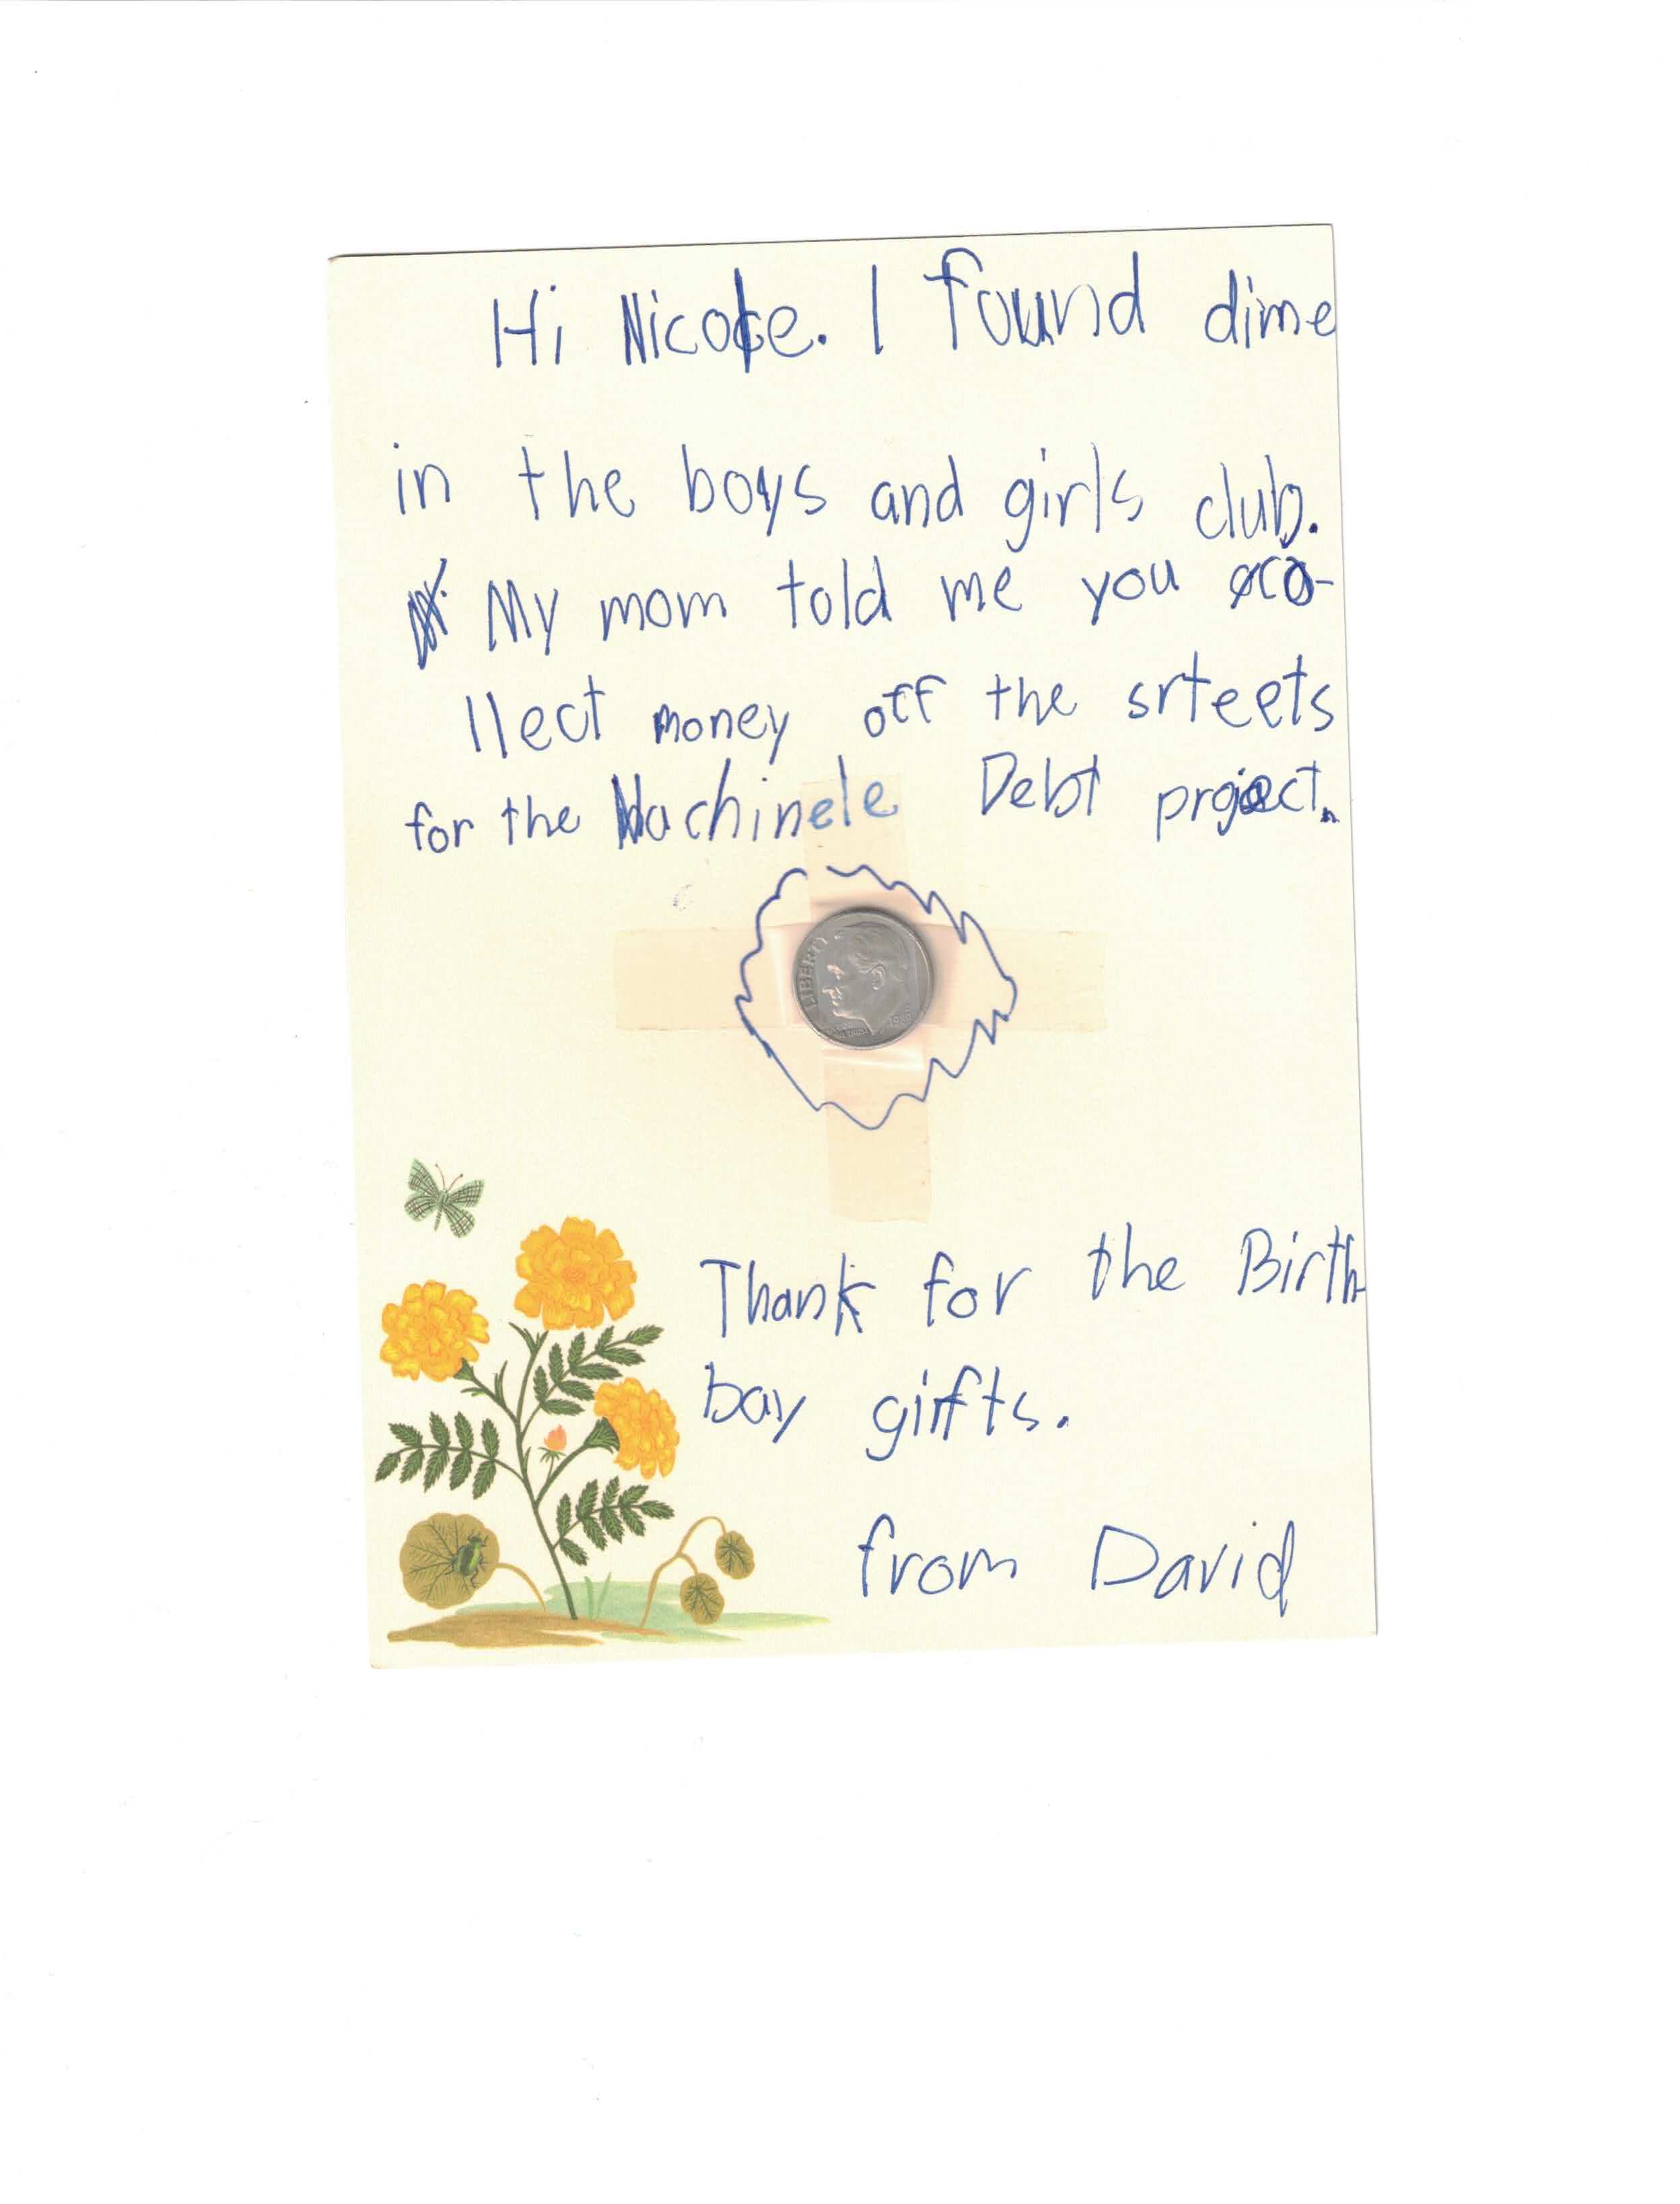 Hi Nicole. I found dime
in the boys and girls club.
My mom told me you co-
llect money off the srteets
for the Nachinele Debt project.
LIBERTY
Thank for the Birth-
bay gifts.
from David